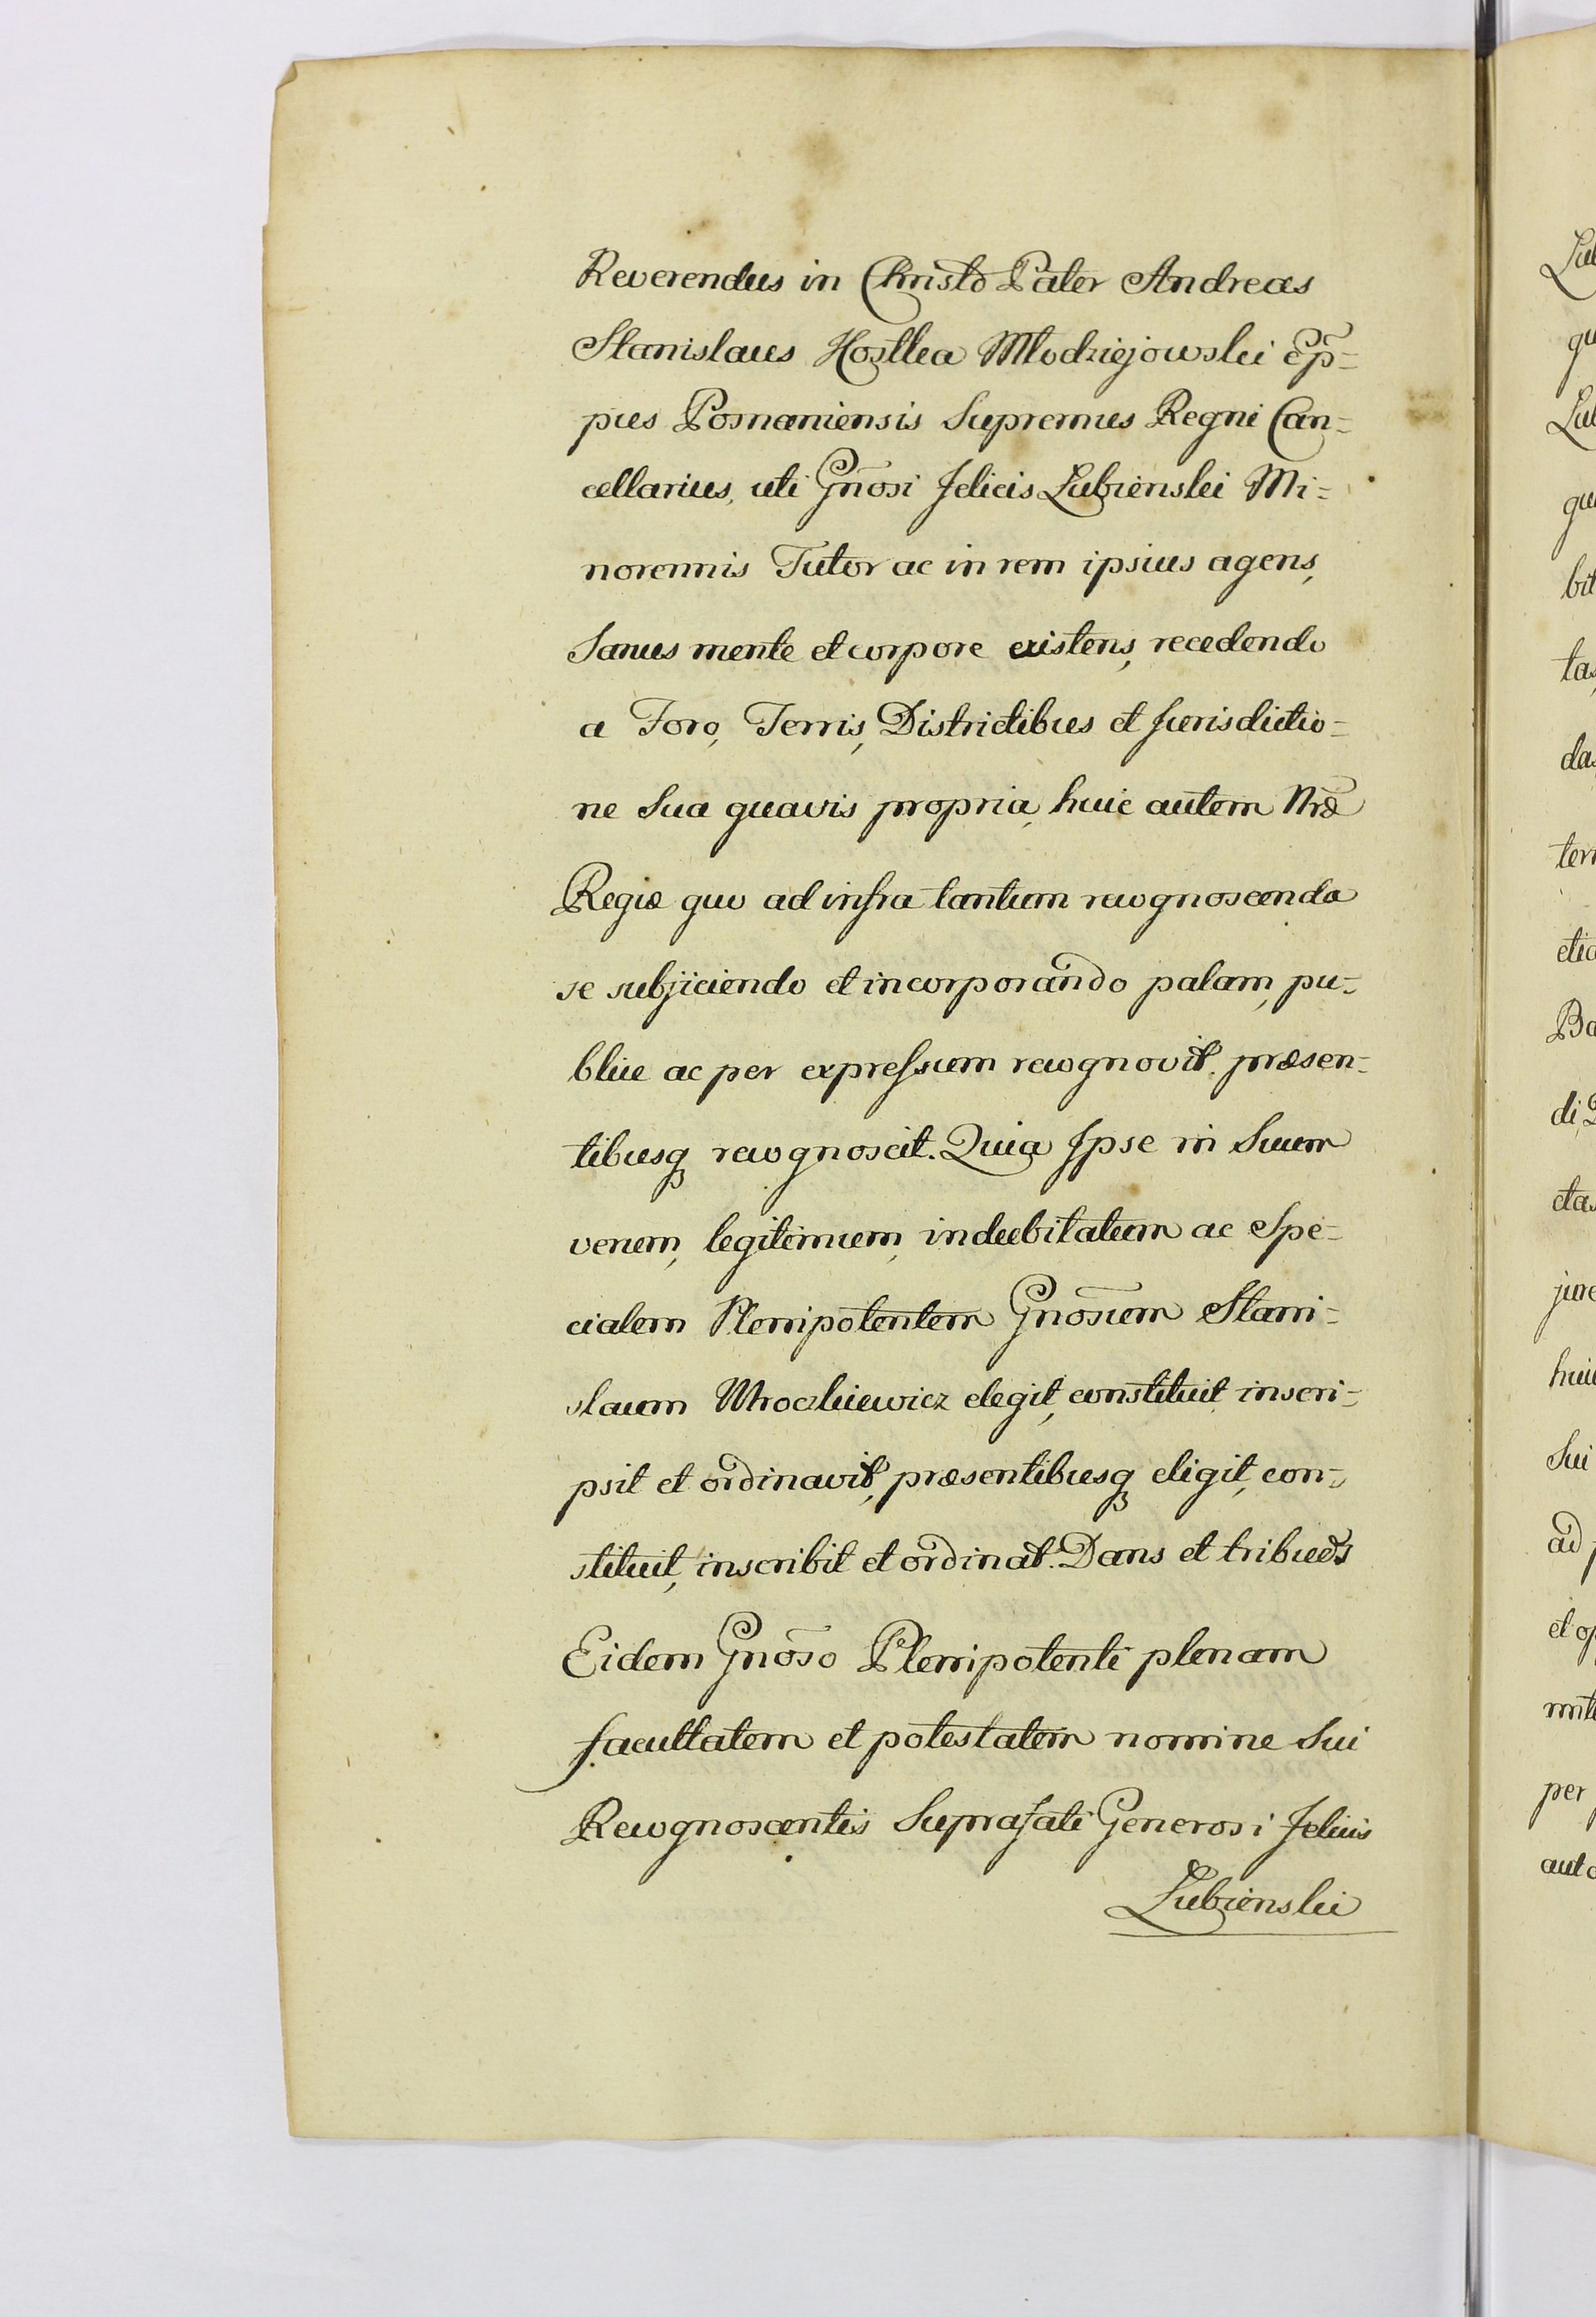 Reverendus in Christo Pater Andreas
Stanislaus Kostka Młodziejowski Ep̃=
pus Posnaniensis Supremus Regni Can=
cellarius, uti Gñosi Felicis Łubienski Mi=
norennis Tutor ac in rem ipsius agens,
Sanus mente et corpore existens, recedendo
a Foro, Terris, Districtibus et Jurisdictio=
ne Sua quavis propria, huic autem Nræ
Regiæ quo ad infra tantum recognoscenda
se subjiciendo et incorporando palam, pu=
blice ac per expressum recognovit. præsen=
tibusq recognoscit. Quia Ipse in Suum
verum, legitimum, indubitatum ac Spe=
cialem Plenipotentem Gñosum Stani=
slaum Mroczkiewicz elegit, constituit inscri=
psit et ordinavit, præsentibusq eligit, con=
stituit, inscribit et ordinat. Dans et tribuens
Eidem Gñoso Plenipotenti plenam
facultatem et potestatem nomine Sui
Recognoscentis Suprafati Generosi Felicis
Łubienski
Łub
qu
Łub
qu
bit
tas
das
ter
etia
Ba
di,
etas
jure
huic
Sui
ad p
et op
mit
per
aut